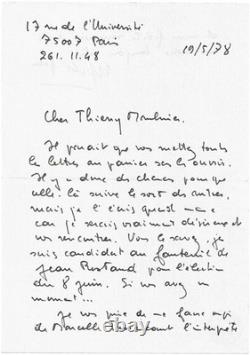 17 rue de l'Université
75007 Paris
261.11.48
19/5/78
Cher Thierry Maulnier.
Il paraît que vous mettez toutes
les lettres au panier sans les ouvrir.
Il y a donc des chances pour que
celle-là suive le sort des autres,
mais je l'écris quand même
car je serais vraiment désireux de
vous rencontrer. Vous le savez, je
suis candidat au fauteuil de
Jean Rostand pour l'élection
du 8 juin. Si vous avez un
moment...
Je vous prie de me faire
de Marcelle l'interprète
ebay